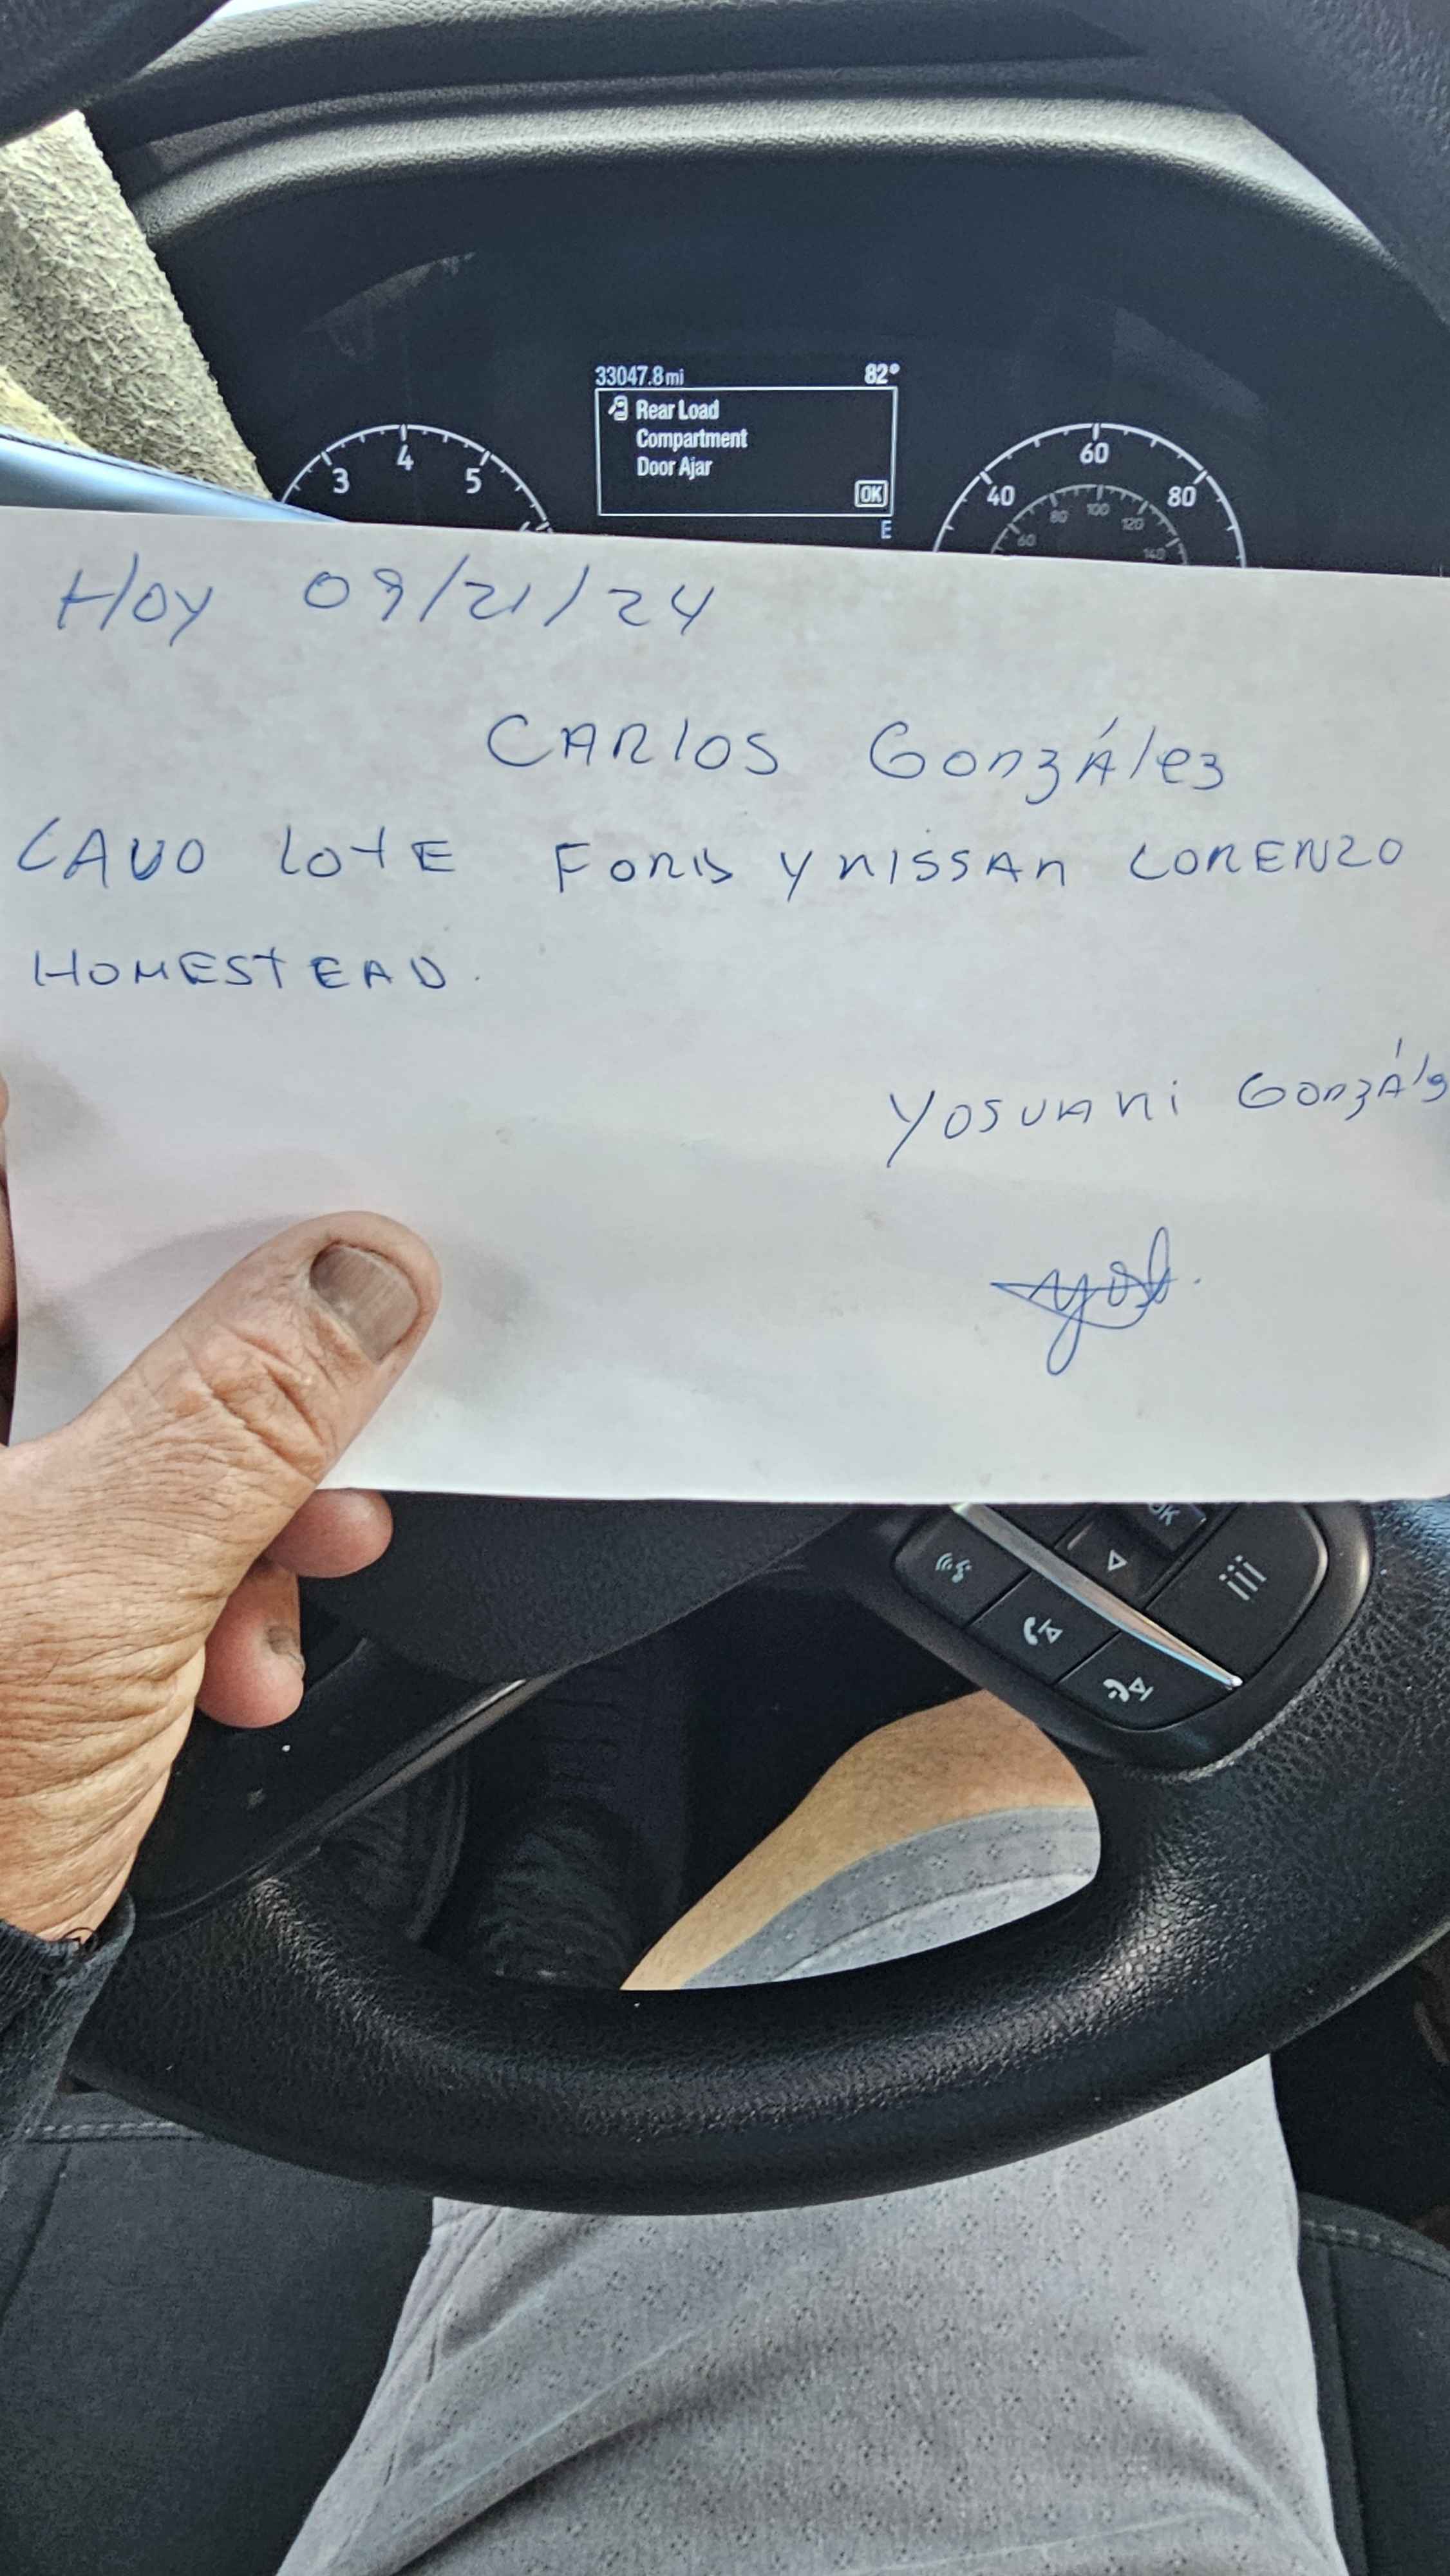 33047.8 mi 82°
Rear Load
Compartment
Door Ajar
OK
E
3 4 5
40 60 80
60 80 100 120 140
Hoy 09/21/24
CARlos González
LAVO lotE FORD y NISSAN LORENZO
HOMESTEAD.
YOSVANI Gonzál
OK